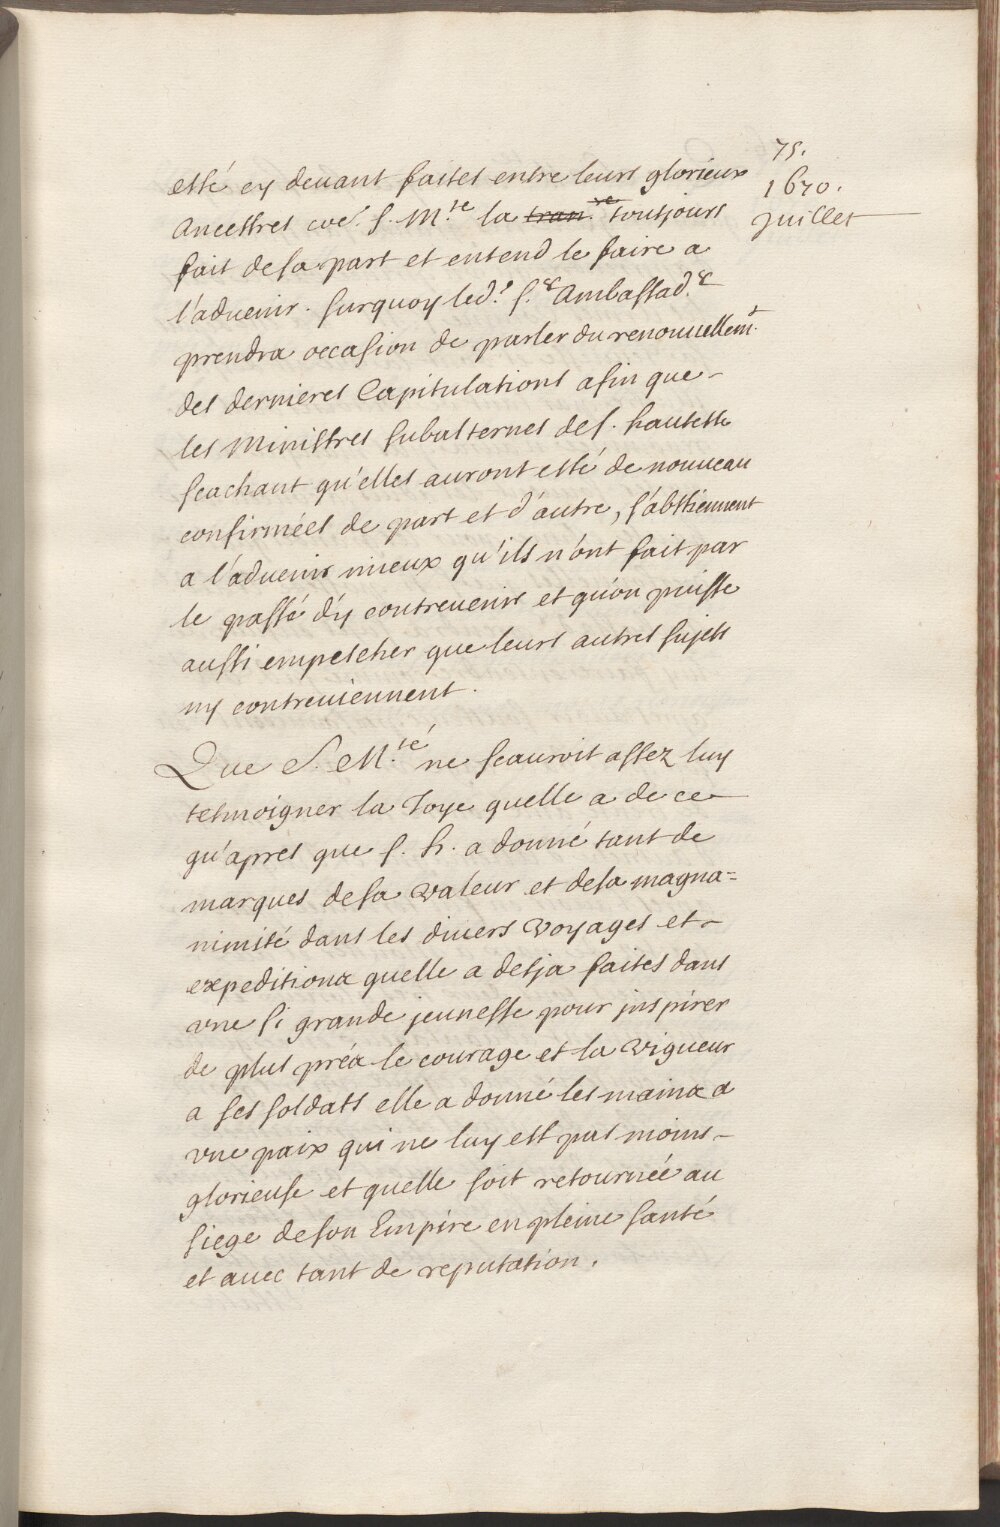 75.
1670.
Juillet
esté cy devant faites entre leurs glorieux
Ancestres coe. S. M.te la toutjours
fait de sa part et entend le faire a
l'advenir. surquoy led.t s.r Ambassad.r
prendra occasion de parler du renouvellem.t
des dernieres Capitulations afin que
les Ministres subalternes de s. hautesse
scachant qu'elles auront esté de nouveau
confirmées de part et d'autre, s'abstiennent
a l'advenir mieux qu'ils n'ont fait par
le passé d'y contrevenir et qu'on puisse
aussi empescher que leurs autres sujets
ny contreviennent.
Que S. M.té ne scauroit assez luy
tesmoigner la Joye quelle a de ce
qu'apres que s. h. a donné tant de
marques de sa valeur et de sa magna=
nimité dans les divers voyages et
expeditions quelle a desja faites dans
vne si grande jeunesse pour inspirer
de plus prés le courage et la vigueur
a ses soldats elle a donné les mains a
vne paix qui ne luy est pas moins
glorieuse et quelle soit retournée au
siege de son Empire en pleine santé
et avec tant de reputation.